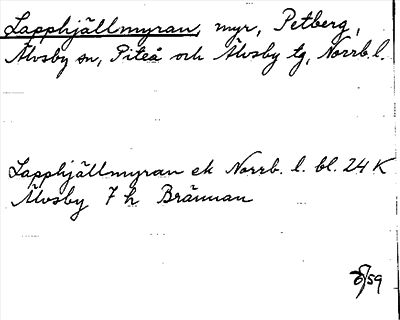 Lapphjällmyran, myr, Petberg,
Älvsby sn, Piteå och Älvsby tg, Norrb. l.
Lapphjällmyran ek Norrb. l. bl. 24 K
Älvsby 7 h Brännan
/59